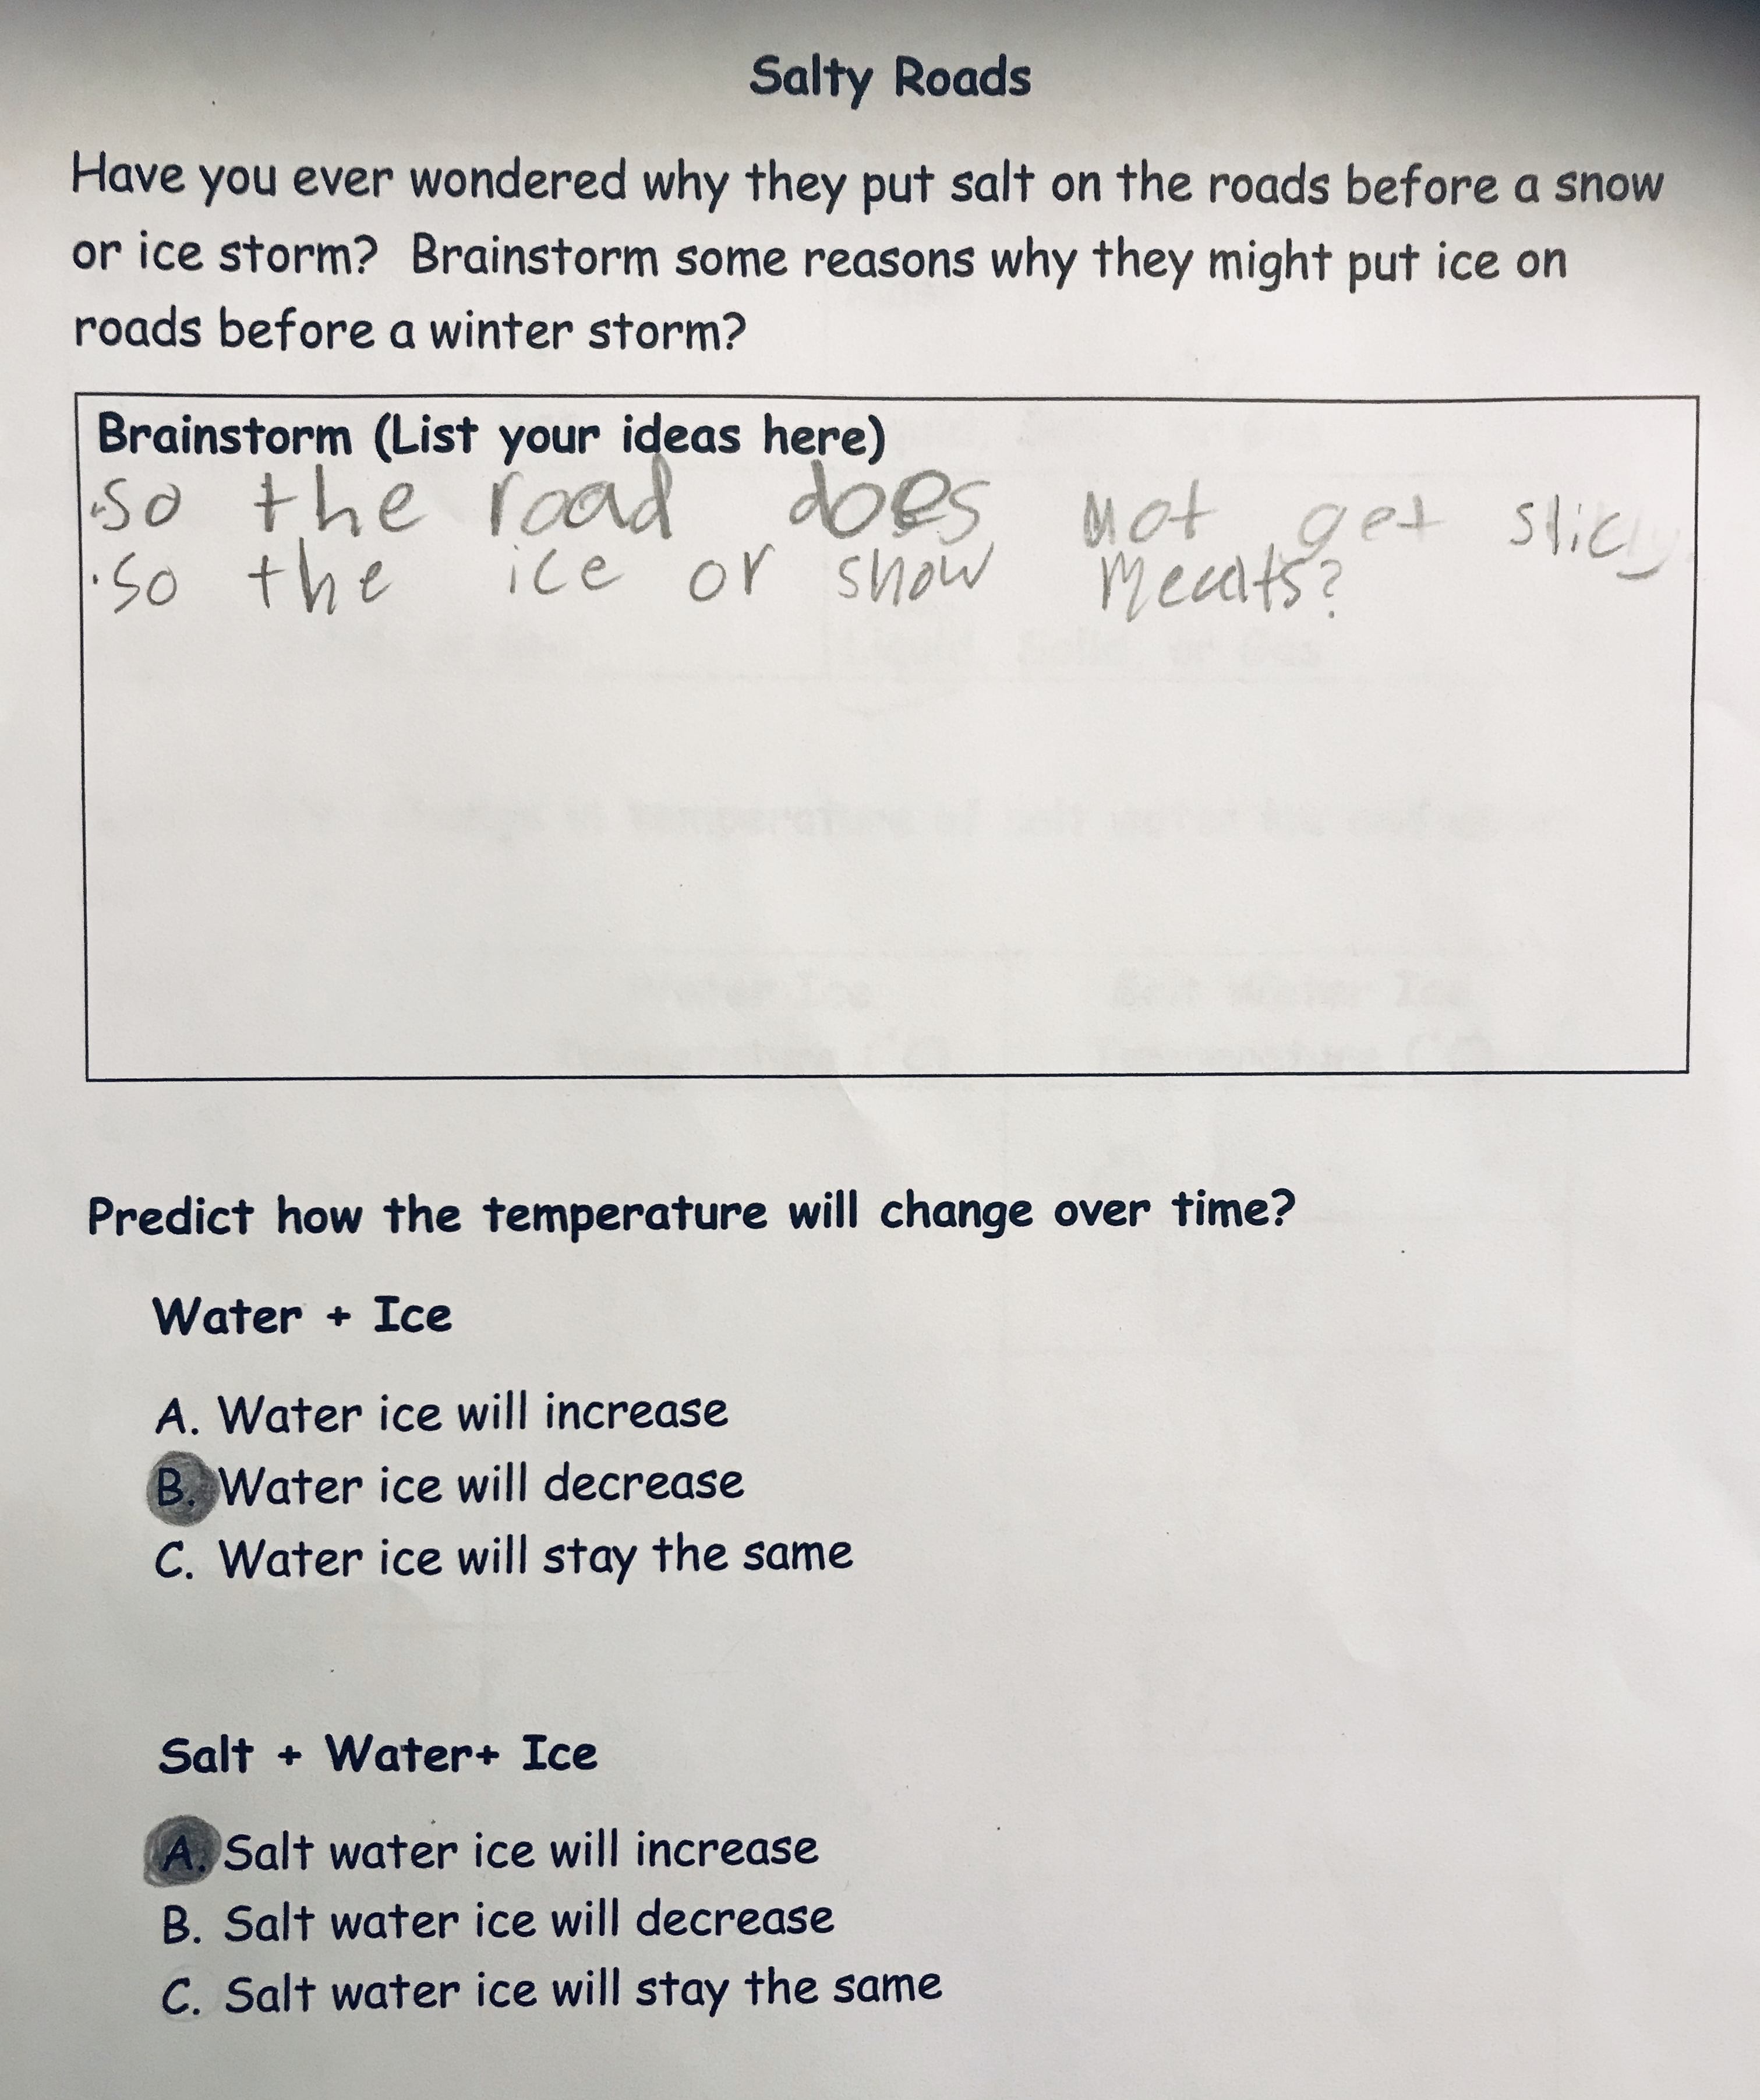 Salty Roads
Have you ever wondered why they put salt on the roads before a snow
or ice storm? Brainstorm some reasons why they might put ice on
roads before a winter storm?
Brainstorm (List your ideas here)
·so the road does not get slicy
·so the ice or snow mealts?
Liquid, Solid, or Gas
change in temperature of salt water ice and
Water Ice Salt Water Ice
Temperature (°C) Temperature (°C)
Predict how the temperature will change over time?
Water + Ice
A. Water ice will increase
B. Water ice will decrease
C. Water ice will stay the same
Salt + Water+ Ice
A. Salt water ice will increase
B. Salt water ice will decrease
C. Salt water ice will stay the same